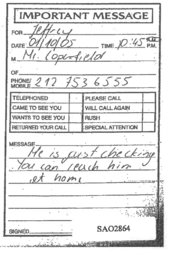 IMPORTANT MESSAGE
FOR Jeffrey
DATE 01/10/05 TIME 10:45 P.M.
M Mr. Copenfield
OF
PHONE/ MOBILE 212 753 6555
TELEPHONED PLEASE CALL
CAME TO SEE YOU WILL CALL AGAIN
WANTS TO SEE YOU RUSH
RETURNED YOUR CALL SPECIAL ATTENTION
MESSAGE
He is just checking
You can reach him
at home
SIGNED
SAO2864